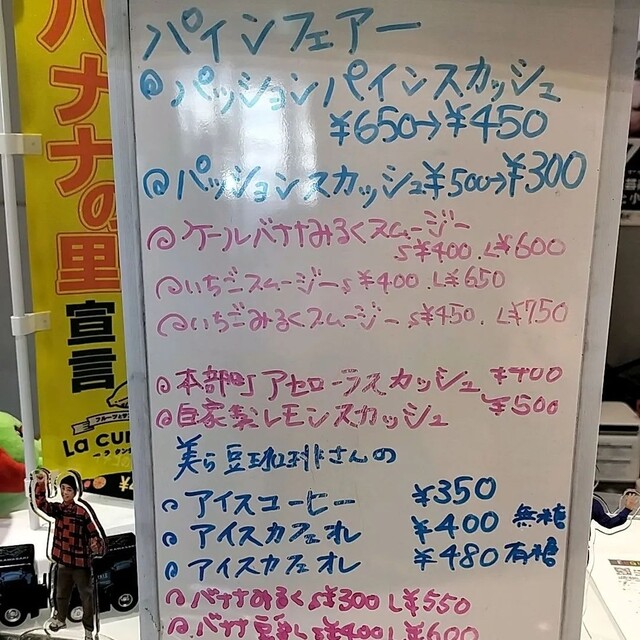 パインフェアー
@パッションパインスカッシュ
¥650→¥450
@パッションスカッシュ¥500→¥300
@ケールバナナみるくスムージー
S¥400.L¥600
@いちごスムージーS¥400.L¥650
@いちごみるくスムージーS¥450.L¥750
@本部町アセローラスカッシュ ¥400
@自家製レモンスカッシュ ¥500
美ら豆珈琲さんの
@アイスコーヒー ¥350
@アイスカフェオレ ¥400 無糖
@アイスカフェオレ ¥480 有糖
@バナナみるくS¥300L¥550
@バナナ豆乳S¥400L¥600
バナナの里
宣言